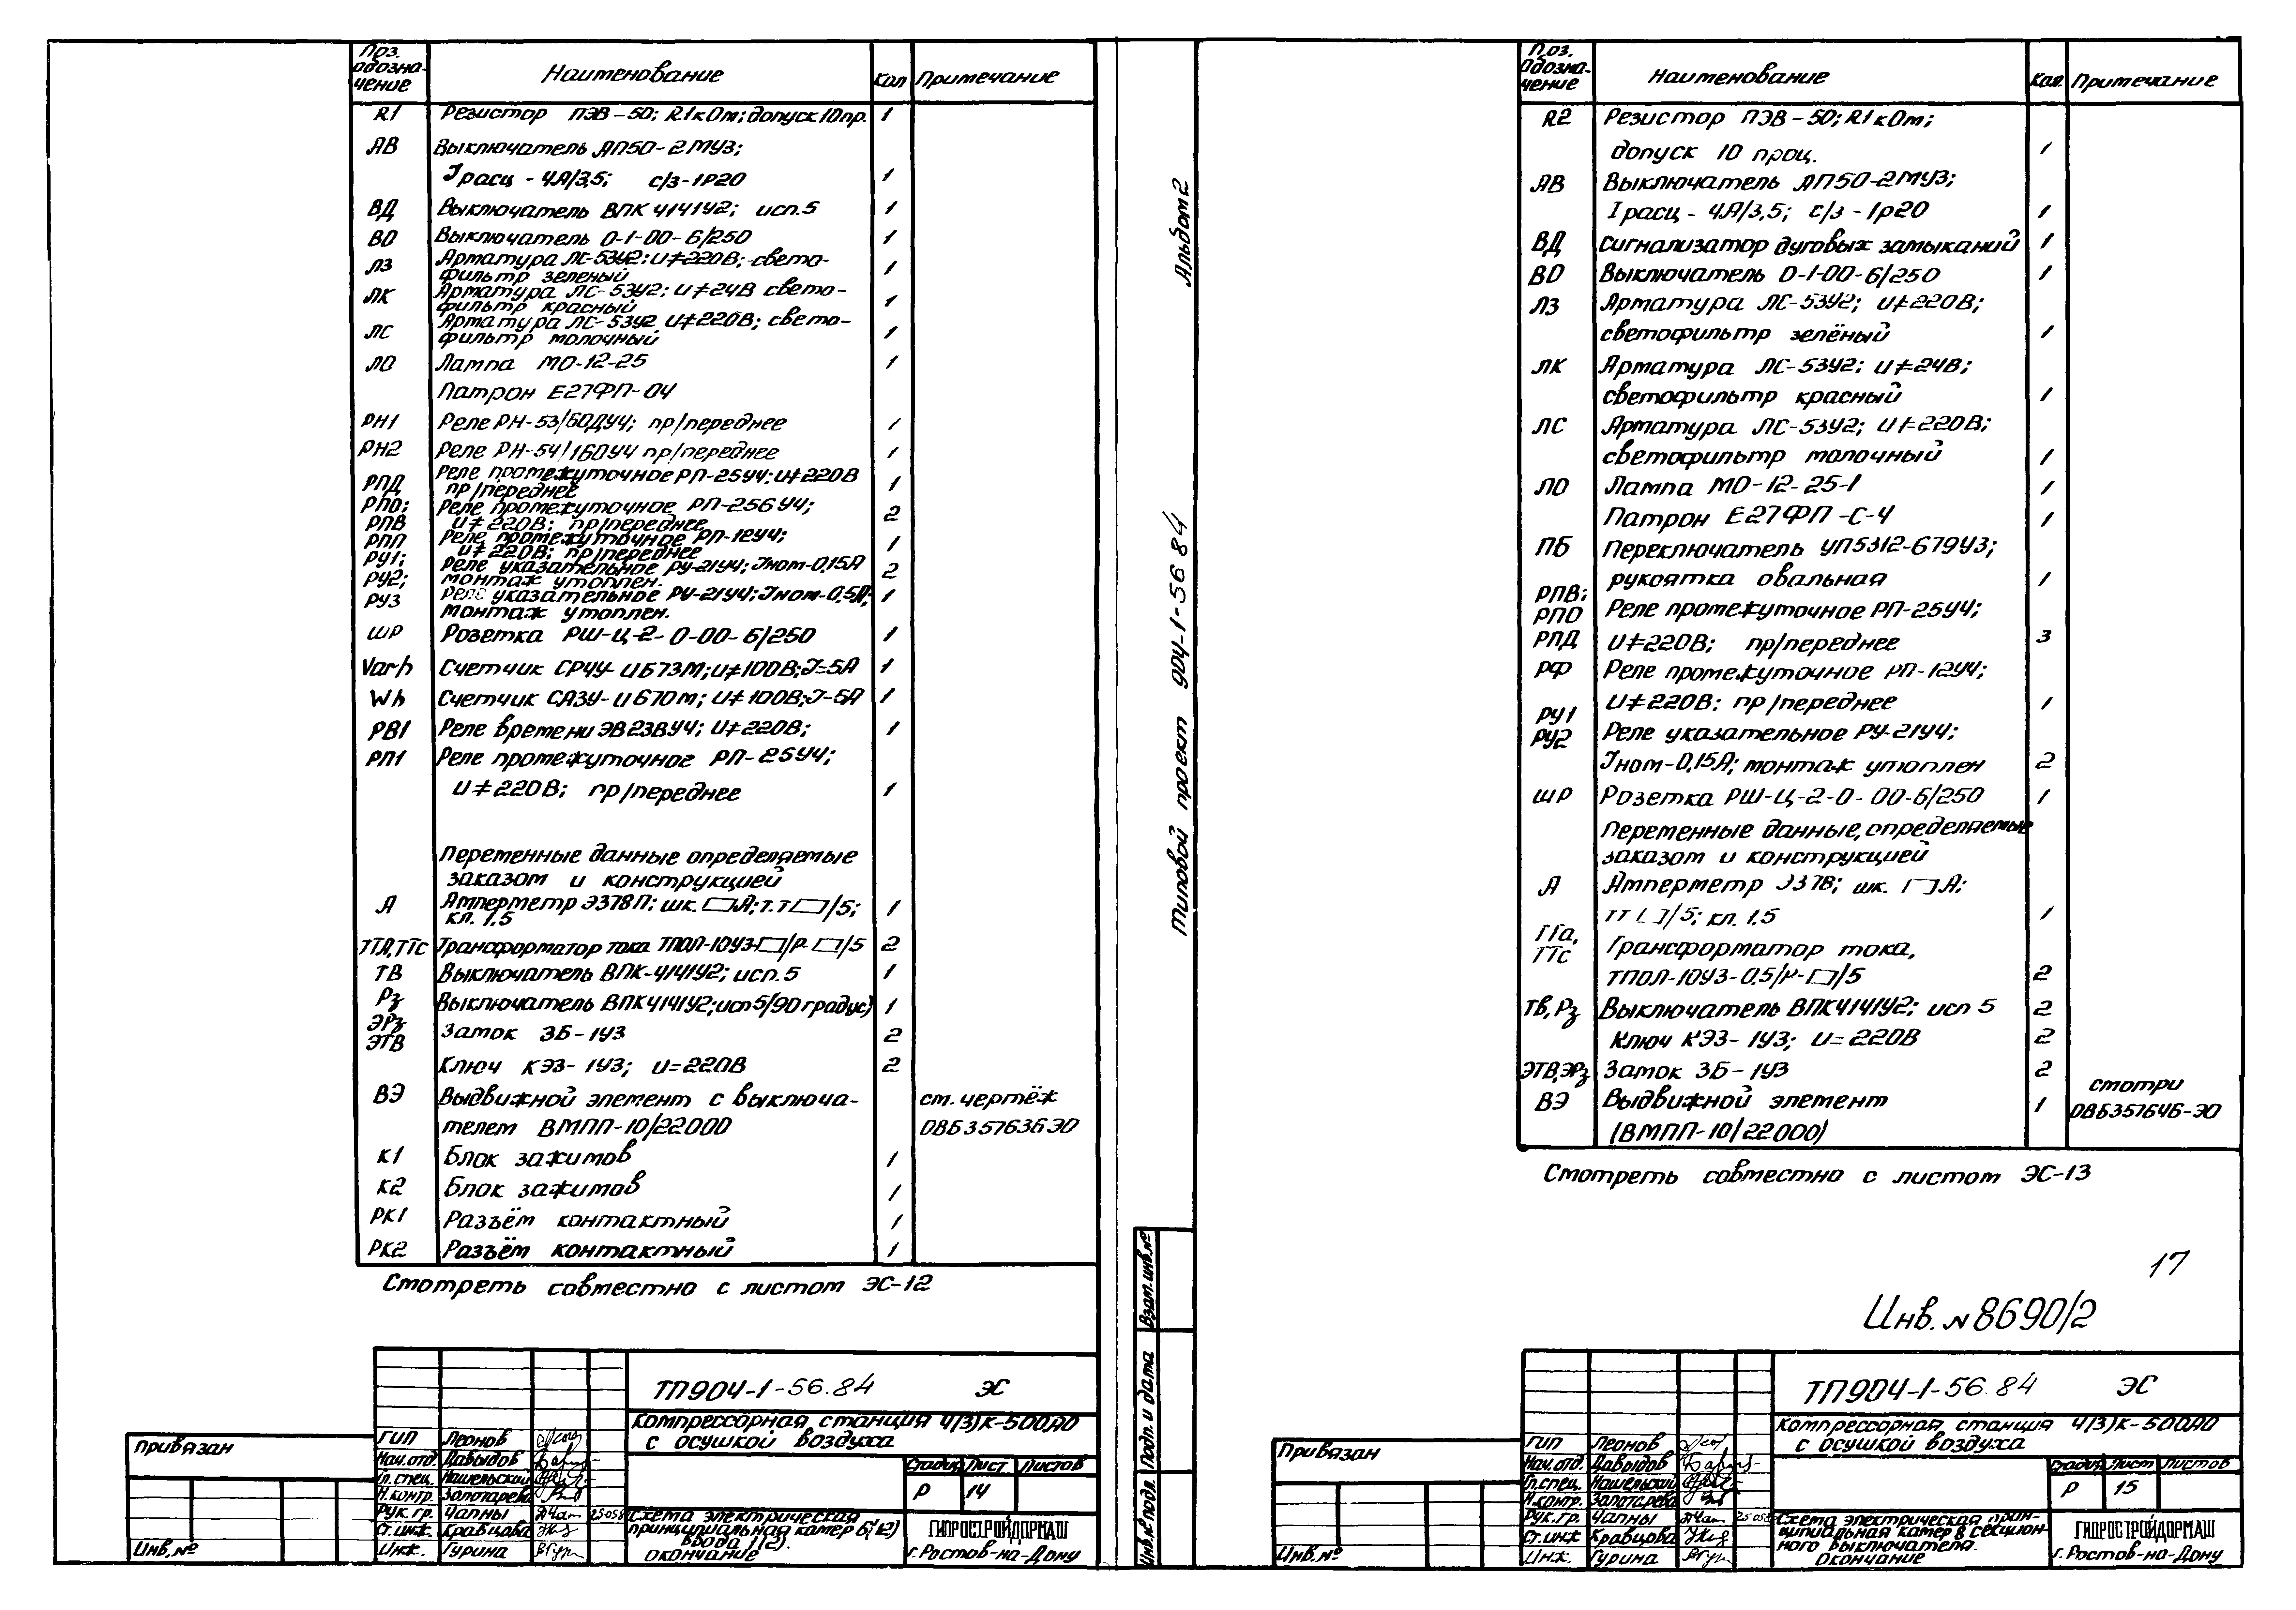 Поз. обозначение Наименование Кол Примечание
R1 Резистор ПЭВ-50; R1кОм; допуск 10пр. 1
АВ Выключатель АП50-2МУ3;
Iрасц-4А/3,5; с/з-1Р20 1
ВД Выключатель ВПК 4141У2; исп.5 1
ВО Выключатель О-1-00-6/250 1
ЛЗ Арматура ЛС-53У2; U≠220В; свето-
фильтр зеленый 1
ЛК Арматура ЛС-53У2; U≠24В свето-
фильтр красный 1
ЛС Арматура ЛС-53У2 U≠220В; свето-
фильтр молочный 1
ЛО Лампа МО-12-25 1
Патрон Е27ФП-04
РН1 Реле РН-53/60ДУ4; пр/переднее 1
РН2 Реле РН-54/160У4 пр/переднее 1
РПД Реле промежуточное РП-25У4; U≠220В
пр/переднее 1
РПО; РПВ Реле промежуточное РП-256У4;
U≠220В; пр/переднее 2
РПП Реле промежуточное РП-12У4;
U≠220В; пр/переднее 1
РУ1; РУ2; Реле указательное РУ-21У4; Iном-0,15А
монтаж утоплен. 2
РУ3 Реле указательное РУ-21У4; Iном-0,5А;
монтаж утоплен. 1
ШР Розетка РШ-Ц-2-0-00-6/250 1
Varh Счетчик СРЧУ-U673М; U≠100В; I=5А 1
Wh Счетчик САЗУ-U670м; U≠100В; I-5А 1
РВ1 Реле времени ЭВ23ВУ4; U≠220В; 1
РП1 Реле промежуточное РП-25У4;
U≠220В; пр/переднее 1
Переменные данные определяемые
заказом и конструкцией
А Амперметр Э378П; шк. ▭А; т.т▭/5;
кл. 1.5 1
ТТА, ТТс Трансформатор тока ТПОЛ-10У3-▭/Р-▭/5 2
ТВ Выключатель ВПК-4141У2; исп.5 1
Рз Выключатель ВПК4141У2; исп5/90 градус) 1
ЭРз ЭТВ Замок ЗБ-1У3 2
Ключ КЭЗ-1У3; U=220В 2
ВЭ Выдвижной элемент с выключа- ст. чертёж
телем ВМПП-10/22000 ОВБ357636ЭО
К1 Блок зажимов 1
К2 Блок зажимов 1
РК1 Разъём контактный 1
РК2 Разъём контактный 1
Смотреть совместно с листом ЭС-12
ТП904-1-56.84 ЭС
Компрессорная станция 4(3)К-500А0
с осушкой воздуха
ГИП Леонов
Нач.отд. Давыдов
Гл.спец. Нашельский
Н.контр. Золотарева
Рук.гр. Чапны
Ст.инж. Кравцова
Инж. Гурина
Стадия Лист Листов
Р 14
Схема электрическая
принципиальная камер 6(12)
ввода 1(2).
Окончание
ГИПРОСТРОЙДОРМАШ
г. Ростов-на-Дону
Привязан
Инв.№
Альбом 2
Типовой проект 904-1-56 84
Взам.инв.№
Подп. и дата
Инв.№ подл.
Поз. обозначение Наименование Кол. Примечание
R2 Резистор ПЭВ-50; R1кОм;
допуск 10 проц. 1
АВ Выключатель АП50-2МУ3;
Iрасц-4А/3,5; с/з-1Р20 1
ВД сигнализатор дуговых замыканий 1
ВО Выключатель О-1-00-6/250 1
ЛЗ Арматура ЛС-53У2; U≠220В;
светофильтр зелёный 1
ЛК Арматура ЛС-53У2; U≠24В;
светофильтр красный 1
ЛС Арматура ЛС-53У2; U≠220В;
светофильтр молочный 1
ЛО Лампа МО-12-25-1 1
Патрон Е27ФП-С-4 1
ПБ Переключатель УП5312-679У3;
рукоятка овальная 1
РПВ; РПО Реле промежуточное РП-25У4;
РПД U≠220В; пр/переднее 3
РФ Реле промежуточное РП-12У4;
U≠220В; пр/переднее 1
РУ1 РУ2 Реле указательное РУ-21У4;
Iном-0,15А; монтаж утоплен 2
ШР Розетка РШ-Ц-2-0-00-6/250 1
Переменные данные, определяемые
заказом и конструкцией
А Амперметр Э378; шк. ▭А;
ТТ▭/5; кл. 1.5 1
ТТа, ТТс Трансформатор тока,
ТПОЛ-10У3-0.5/Р-▭/5 2
ТВ, Рз Выключатель ВПК4141У2; исп 5 2
Ключ КЭЗ-1У3; U=220В 2
ЭТВ, ЭРз Замок ЗБ-1У3 2
ВЭ Выдвижной элемент 1 смотри
(ВМПП-10/22000) ОВБ357646-ЭО
Смотреть совместно с листом ЭС-13
17
Инв. №8690/2
ТП904-1-56.84 ЭС
Компрессорная станция 4(3)К-500А0
с осушкой воздуха
ГИП Леонов
Нач.отд. Давыдов
Гл.спец. Нашельский
Н.контр. Золотарева
Рук.гр. Чапны
Ст.инж Кравцова
Инж. Гурина
Стадия Лист Листов
Р 15
Схема электрическая прин-
ципиальная камер в секцион-
ного выключателя.
Окончание
ГИПРОСТРОЙДОРМАШ
г. Ростов-на-Дону
Привязан
Инв.№